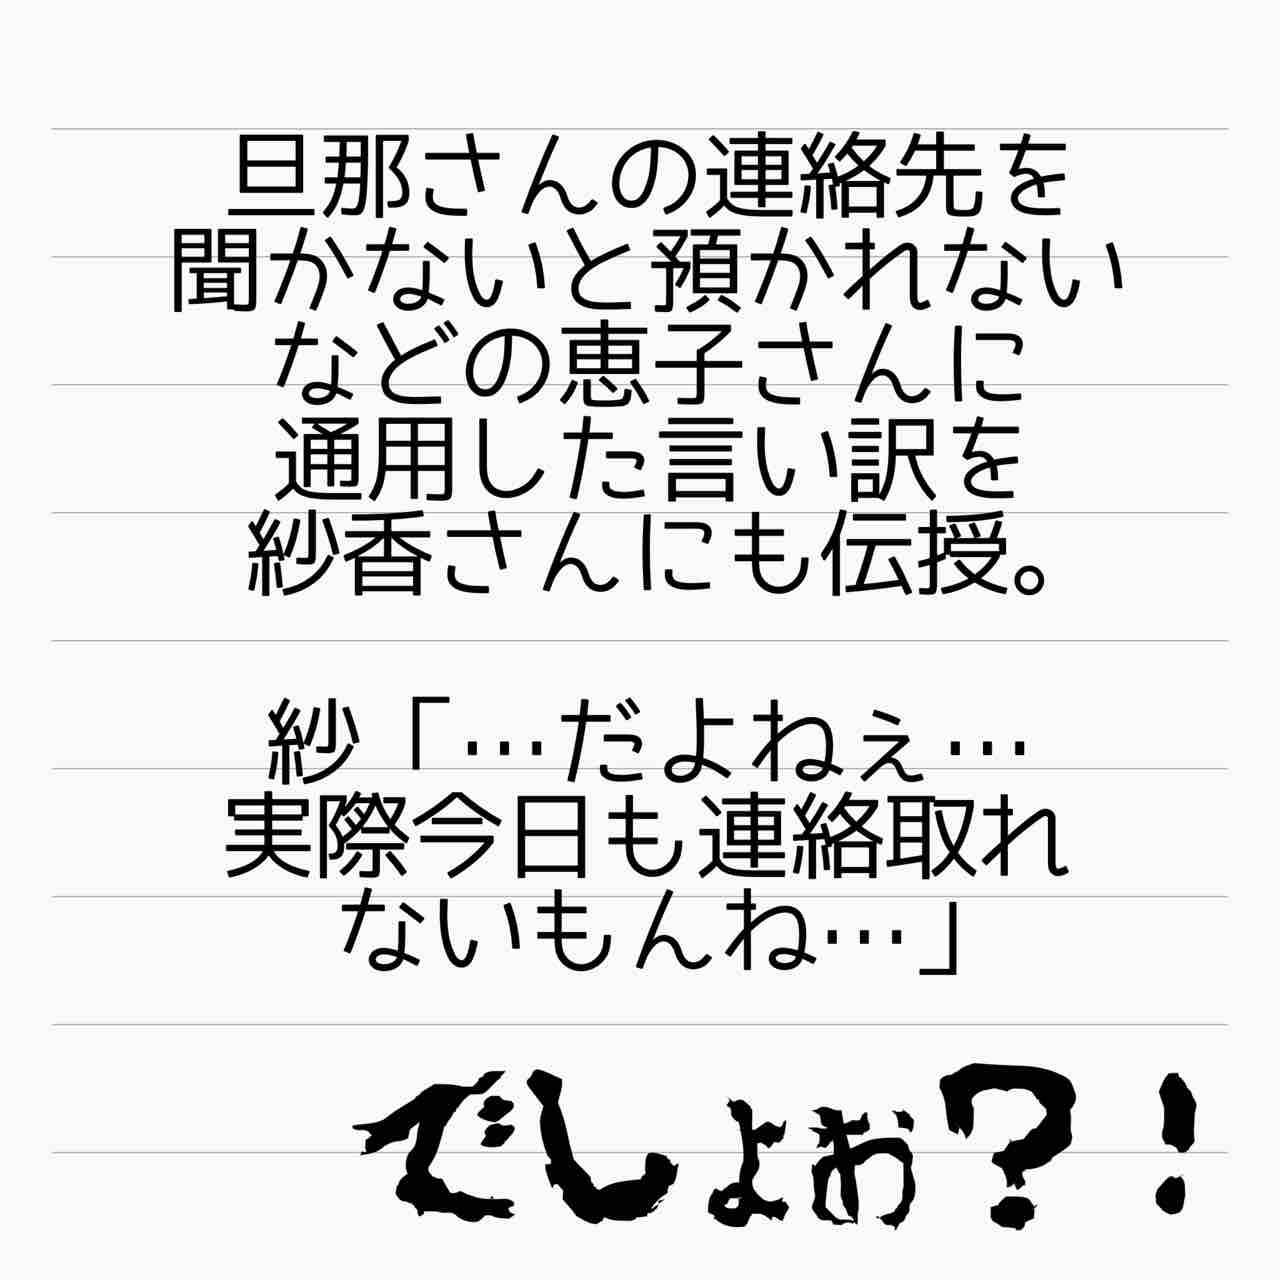 旦那さんの連絡先を
聞かないと預かれない
などの恵子さんに
通用した言い訳を
紗香さんにも伝授。
紗「…だよねぇ…
実際今日も連絡取れ
ないもんね…」
でしょぉ?!